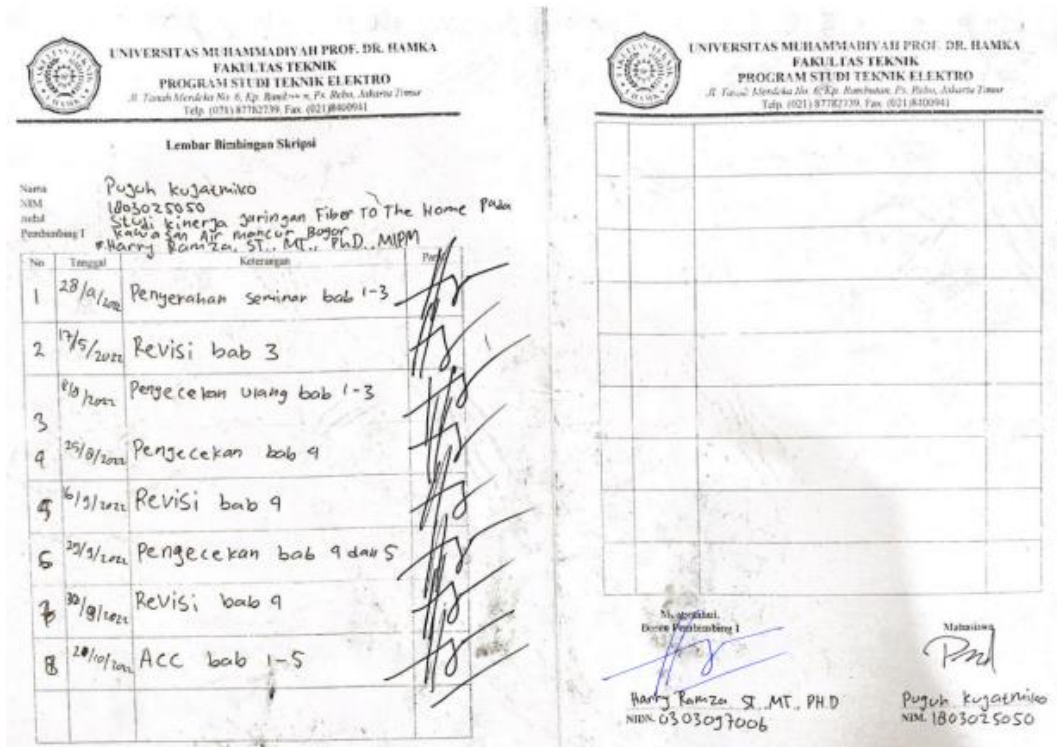 UNIVERSITAS MUHAMMADIYAH PROF. DR. HAMKA
FAKULTAS TEKNIK
PROGRAM STUDI TEKNIK ELEKTRO
Jl. Tanah Merdeka No. 6, Kp. Rambutan, Ps. Rebo, Jakarta Timur
Telp. (021) 87782739, Fax. (021)8400941
Lembar Bimbingan Skripsi
Nama : Puguh kujatmiko
NIM 1803025050
Judul Studi kinerja jaringan Fiber To The Home Pada
kawasan Air mancur Bogor
Pembimbing I Harry Ramza, ST., MT., Ph.D., MIPM
No Tanggal Keterangan Paraf
1 Penyerahan seminar bab 1-3
2 17/5/2022 Revisi bab 3
3 Pengecekan ulang bab 1-3
4 25/8/2022 Pengecekan bab 4
Revisi bab 4
Pengecekan bab 4 dan 5
Revisi bab 4
8 ACC bab 1-5
UNIVERSITAS MUHAMMADIYAH PROF. DR. HAMKA
FAKULTAS TEKNIK
PROGRAM STUDI TEKNIK ELEKTRO
Jl. Tanah Merdeka No. 6, Kp. Rambutan, Ps. Rebo, Jakarta Timur
Telp. (021) 87782739, Fax. (021)8400941
Mengetahui,
Dosen Pembimbing I
Harry Ramza ST., MT., PH.D
NIDN. 0303097006
Mahasiswa
Puguh kujatmiko
NIM. 1803025050